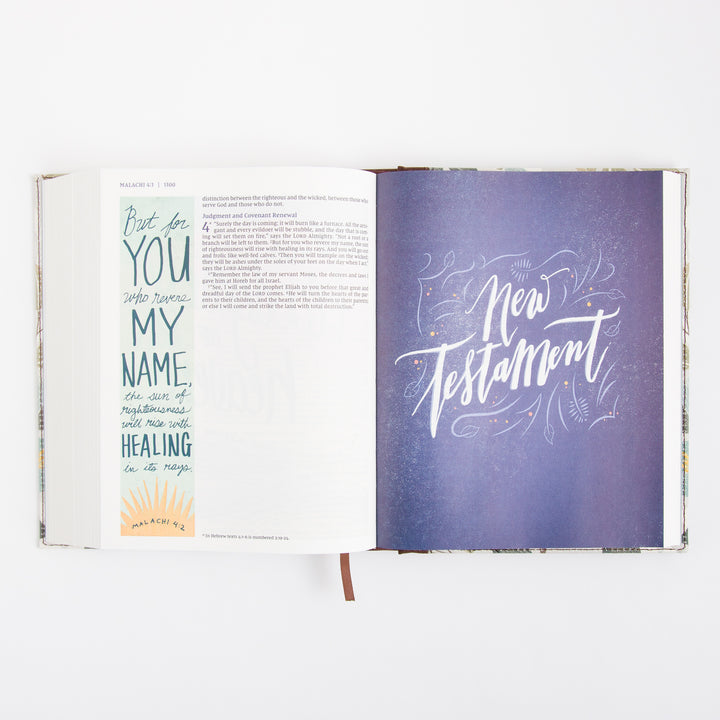 MALACHI 4:1 | 1300
But for
YOU
who revere
MY
NAME,
the sun of
righteousness
will rise with
HEALING
in its rays.
MALACHI 4:2
distinction between the righteous and the wicked, between those who
serve God and those who do not.
Judgment and Covenant Renewal
4 "Surely the day is coming; it will burn like a furnace. All the arro-
gant and every evildoer will be stubble, and the day that is com-
ing will set them on fire," says the LORD Almighty. "Not a root or a
branch will be left to them. 2But for you who revere my name, the sun
of righteousness will rise with healing in its rays. And you will go out
and frolic like well-fed calves. 3Then you will trample on the wicked;
they will be ashes under the soles of your feet on the day when I act,"
says the LORD Almighty.
4"Remember the law of my servant Moses, the decrees and laws I
gave him at Horeb for all Israel.
5"See, I will send the prophet Elijah to you before that great and
dreadful day of the LORD comes. 6He will turn the hearts of the par-
ents to their children, and the hearts of the children to their parents;
or else I will come and strike the land with total destruction."
In Hebrew texts 4:1-6 is numbered 3:19-24.
New
Testament